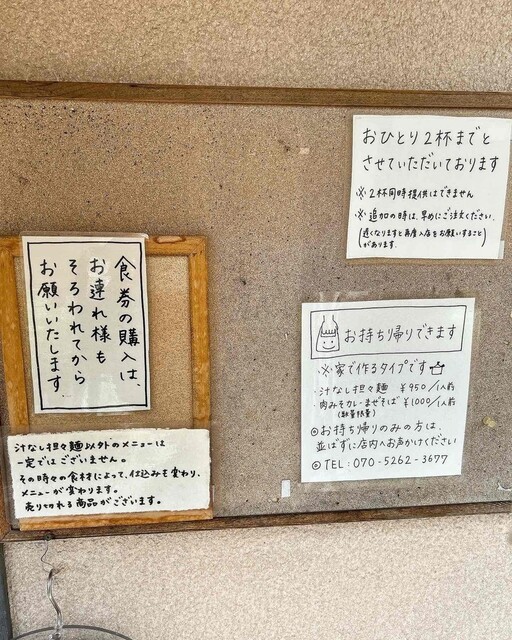 おひとり2杯までと
させていただいております
※2杯同時提供はできません
※追加の時は、早めにご注文ください。
(遅くなりますと再度入店をお願いすること
があります。)
食券の購入は、
お連れ様も
そろわれてから
お願いいたします。
お持ち帰りできます
※家で作るタイプです
汁なし担々麺 ¥950/1人前
肉みそカレーまぜそば ¥1000/1人前
(数量限量)
◎お持ち帰りのみの方は、
並ばずに店内へお声かけください
◎TEL:070-5262-3677
汁なし担々麺以外のメニューは
一定ではございません。
その時々の食材によって、仕込みも変わり、
メニューが変わります。
売り切れる商品がございます。